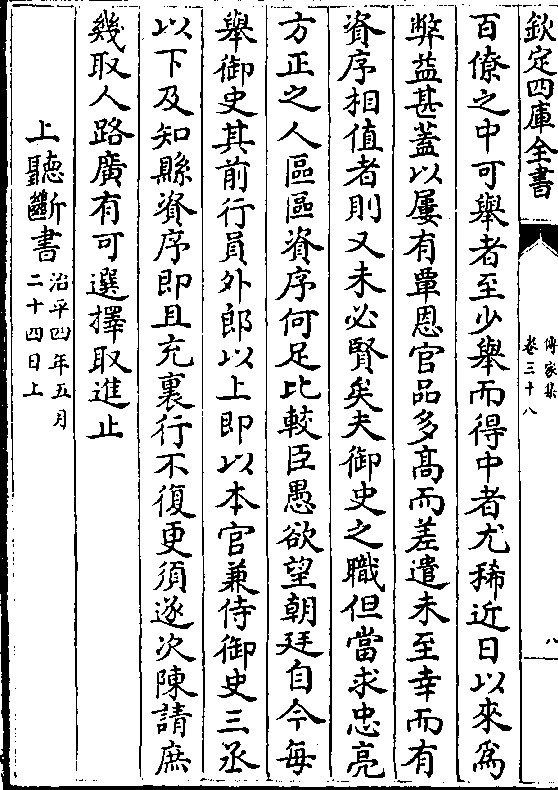 欽定四庫全書
傳家集
卷三十八
八
百僚之中可舉者至少舉而得中者尤稀近日以來為
弊益甚蓋以屢有覃恩官品多髙而差遣未至幸而有
資序相值者則又未必賢矣夫御史之職但當求忠亮
方正之人區區資序何足比較臣愚欲望朝廷自今每
舉御史其前行員外郎以上即以本官兼侍御史三丞
以下及知縣資序即且充裏行不復更須逐次陳請庶
幾取人路廣有可選擇取進止
上聽斷書
治平四年五月
二十四日上